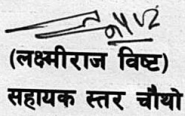 (लक्ष्मीराज विष्ट)
सहायक स्तर चौयो